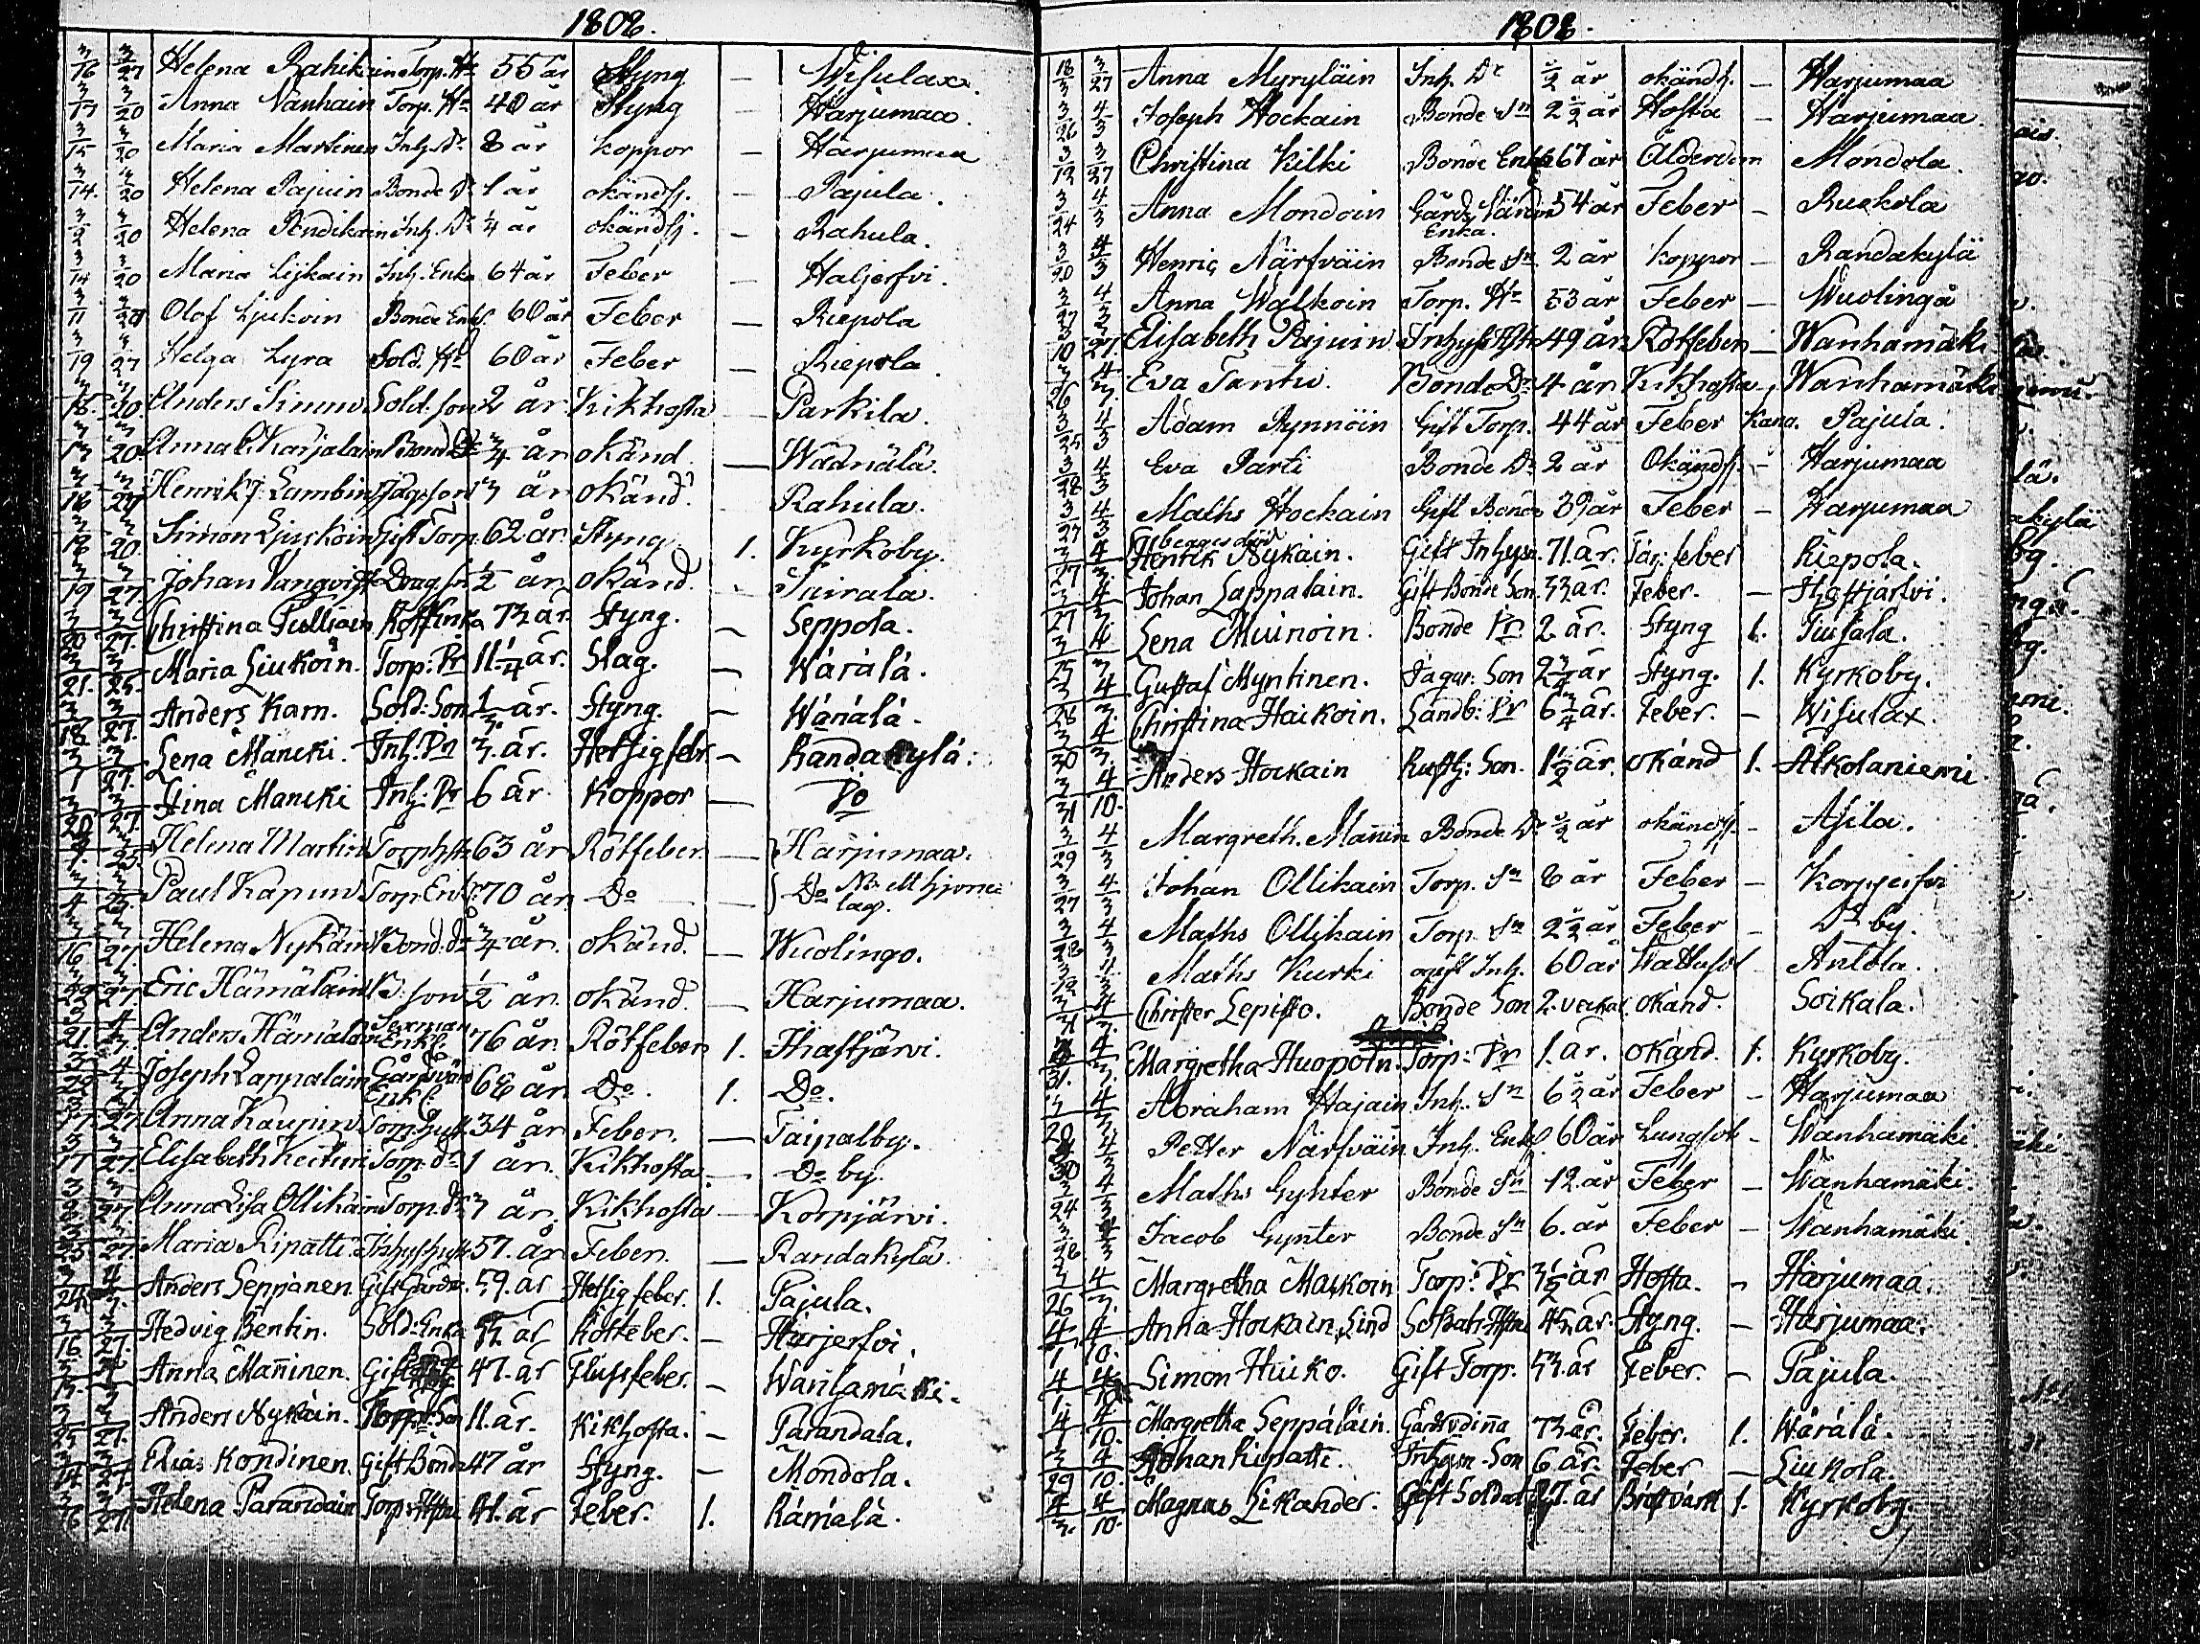 1808.
3/16 3/27 Helena Rahikain Torp. Hu 55 år Styng — Wisulax.
3/17 3/20 Anna Nanhain Torp. Hu 40 år Styng — Harjumaa.
3/15 3/20 Maria Martinen Inh. Dr 8 år Koppor — Harjumaa
3/14 3/20 Helena Pajuin Bonde Dr 1 år okändsj. — Pajula.
3/2 3/20 Helena Pendikain Inh. Dr 1/4 år okändsj. — Rahula.
3/14 3/20 Maria Lijkain Inh. Enka 64 år Feber — Haljerfvi.
3/11 3/20 Olof Ljukoin Bonde Enkl. 60 år Feber — Riepola
3/19 3/27 Helga Lyra Sold. Hu 60 år Feber — Riepola.
3/18 3/20 Anders Kinnu Sold. son 2 år Kikhosta — Parkila.
3/13 3/20 Anna C. Karjalain Bond Dr 3/4 år okänd — Wäänälä.
3/16 3/20 Henrik J. Lambin Jäg. son 3 år okänd. Rahula.
3/18 3/20. Simon Ljuskoin Gift Torp. 62 år. Styng 1. Kyrkoby.
3/19 3/27. Johan Vanqvist Drag. son 1/2 år okänd. - Tuirala.
3/20 3/27. Christina Pulliain Rotf Enka 73 år. Styng. — Seppola.
3/21. 3/25. Maria Liukoin. Torp: Dr 11 1/4 år. Slag. — Wärälä.
3/18 3/27. Anders Kam. Sold: Son 1/3 år. Styng. — Wänälä.
3/7 3/27. Lena Mancki. Inh: Dr 3. år. Hetsig febr. — Randakylä:
3/20 3/27. Stina Mancki Inh: Dr 6 år. Koppor — Do
3/9 3/25. Helena Martin Torp hstr 63 år Rötfeber. — Harjumaa.
3/4 3/25. Paul Kapun Torp. Enkl. 70 år Do — Do
3/16 3/27. Helena Nykäin Bond. dr 3/4 år. okänd. — Wuolingo.
3/22 3/27. Eric Hämäläin B. son 1/2 år. okänd. — Harjumaa.
3/21. 4/3. Anders Hämäläin Sexman Enkl. 76 år. Rötfeber 1. Haftjärvi.
3/22 4/3 Joseph Lappalain Gårdsvär Enkl. 68 år Do. 1. Do.
3/17. 3/27 Anna Kaupin Torp. hust 34 år Feber. — Taipalby.
3/17 3/27. Elisabeth Keituri Torp. dr 1 år. Kikhosta — Do by.
3/22 3/27. Anna Lisa Ollikain Torp. dr 3 år. Kikhosta — Korpjärvi.
3/25 3/27. Maria Ripatti Inhys hust 57. år Feber. — Randakylä.
3/24. 4/3. Anders Seppänen. Gift Gårdv. 59. år Hetsig feber. 1. Pajula.
3/16. 3/27. Hedvig Bentin. Sold: Enka år Rötfeber. — Harjerfvi.
Anna Manninen. Gift 47. år Flussfeber. — Wanhamäki.
Anders Nykäin. Torp: Son 11. år. Kikhosta. — Parandala.
3/14 3/27 Elias Kondinen. Gift Bonde 47 år Styng. — Mondola.
3/16 3/27. Helena Parandain Torp: Hstru 41. år Feber. 1. Rämälä.
1808.
18/3 3/27 Anna Myryläin Inh. Dr 1/2 år okändsj. — Harjumaa
3/26 4/3 Joseph Hockain Bonde Sn 2 1/2 år Hosta — Harjumaa.
3/12 3/27 Christina Kilki Bonde Enka 67 år Ålderdom Mondola.
3/24 4/3 Anna Mondoin Gårdz Värdin Enka. 54 år Feber — Ruokola
3/20 4/3 Henric Närfväin Bonde Sn 2 år Koppor — Randakylä
3/27 4/3 Anna Walkoin Torp. Hu 53 år Feber — Wuolingå
3/10 3/27. Elisabeth Pajuin Inhyss Hstr 49 år Rötfeber — Wanhamäki
3/26 4/3. Eva Tanttu. Bonde Dr 4 år. Kikhosta Wanhamäki
3/25 4/3 Adam Rynnöin Gift Torp. 44 år Feber Kana. Pajula.
3/28 4/3 Eva Parti Bonde Dr 2 år Okändsj. — Harjumaa
3/27 4/3 Maths Hockain Gift Bonde 39 år Feber — Harjumaa
3/17 4/3 Henrik Nykäin. Gift Inhys. 71. år. Tär: feber Riepola.
3/27 4/3. Johan Lappalain. Gift Bonde Son. 33 år. Feber. — Haftjärfvi.
3/25 4/3. Lena Muinoin. Bonde Dr 2 år. Styng 1. Tiusala.
3/28 4/3. Gustaf Myntinen. Jägar: Son 2 3/4 år Styng. 1. Kyrkoby.
3/30 4/3. Christina Haikoin. Landb: Dr 6 3/4 år. Feber. — Wisulax.
3/31 4/10. Anders Hockain Rusth: Son. 1 1/2 år. okänd 1. Alkolaniemi
3/29 4/3 Margreth. Mannin Bonde Dr 1/2 år okändsj. — Asila.
3/27 4/3 Johan Ollikain Torp. Sn 8 år Feber — Korpjerfvi
3/28 4/3 Maths Ollikain Torp. Sn 2 1/2 år Feber — Do by.
3/12 4/3 Maths Kurki gift Inh. 60 år Wattusot — Anttola.
3/31 4/3. Christer Lepistö. Bonde Son 2. veckor. okänd. Soikala.
3/31. 4/3. Margretha Huopoin. Torp: Dr 1. år. okänd. 1. Kyrkoby.
3/20 4/3 Abraham Hajain Inh. Sn 6 1/2 år Feber — Harjumaa
3/30 4/3 Petter Närfväin Inh. Enkl. 60 år Lungsot — Wanhamäki.
3/24 4/3 Maths Gynter Bonde Sn 12. år Feber — Wanhamäki.
3/28 4/3 Jacob Gynter Bonde Sn 6. år Feber — Wanhamäki.
3/26 4/3. Margretha Maukoin Torp: Dr 3 1/2 år Hosta. — Harjumaa.
4/1 4/10. Anna Hockain, Lind Soldats Hstru 42 år. Styng. — Harjumaa.
4/1 4/10 Simon Huiko. Gift Torp. 53. år Feber. — Pajula.
4/1 4/10. Margretha Seppäläin. Gårdsvdinna 73 år. Feber. 1. Wärälä.
3/29 4/10. Johan Ripatti. Inhysm. Son 6. år. Feber — Liukola.
4/3. 4/10. Magnus Sikander. Gift Soldat 27. år Bröstvärk 1. Kyrkoby